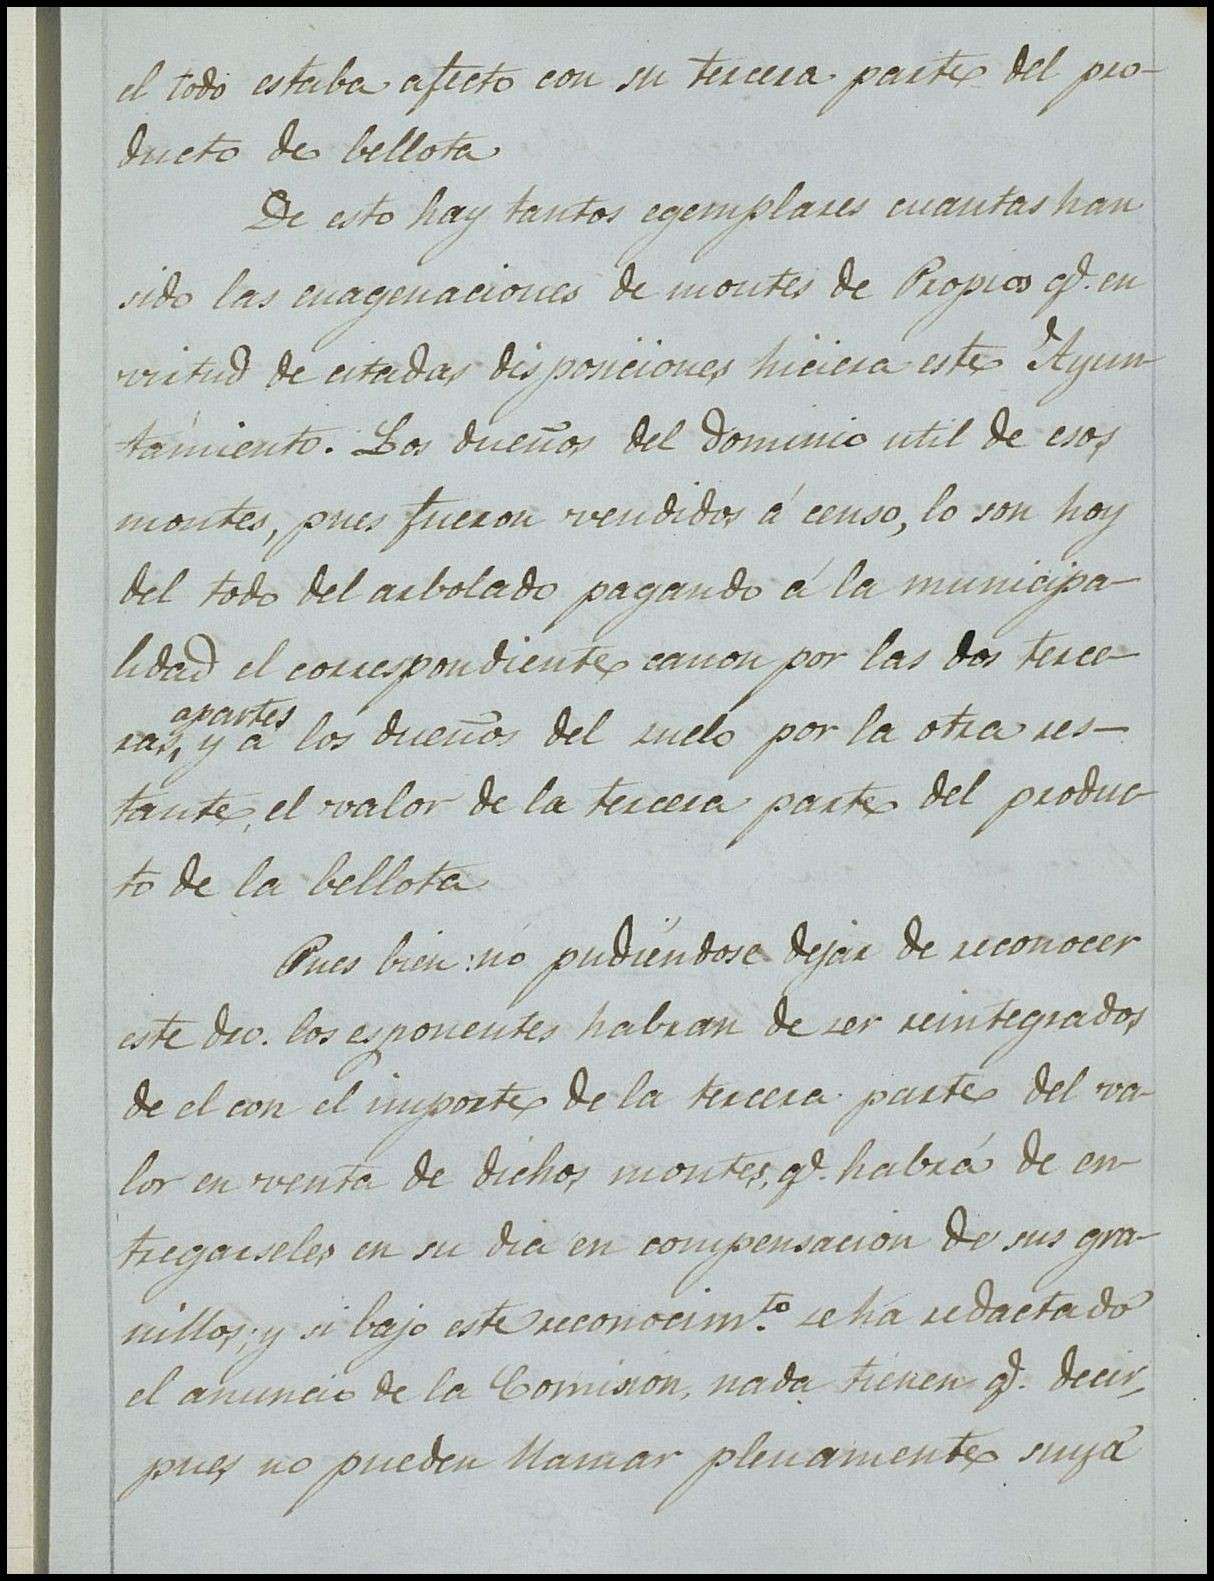 el todo estaba afecto con su tercera parte del pro-
ducto de bellota
De esto hay tantos egemplares cuantas han
sido las enagenaciones de montes de Propios qe. en
virtud de citadas disposiciones hiciera este Ayun-
tamiento. Los dueños del dominio util de esos
montes, pues fueron vendidos á censo, lo son hoy
del todo del arbolado pagando á la municipa-
lidad el correspondiente canon por las dos terce-
apartes
ras, y á los dueños del suelo por la otra res-
tante, el valor de la tercera parte del produc-
to de la bellota
Pues bien: no pudiéndose dejar de reconocer
este dro. los esponentes habran de ser reintegrados
de el con el importe de la tercera parte del va-
lor en venta de dichos montes, qe. habrá de en-
tregarseles en su dia en compensacion de sus gra-
nillos; y si bajo este reconocimto. se ha redactado
el anuncio de la Comision, nada tienen qe. decir,
pues no pueden llamar plenamente suya